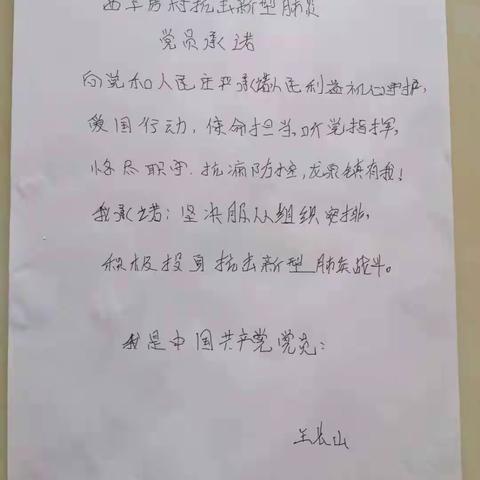 西车房村抗击新型肺炎
党员承诺
向党和人民庄严承诺人民利益初心守护,
爱国行动,使命担当,听党指挥,
恪尽职守.抗病防控,龙泉镇有我!
我承诺:坚决服从组织安排,
积极投身抗击新型肺炎战斗。
我是中国共产党党员:
王长山